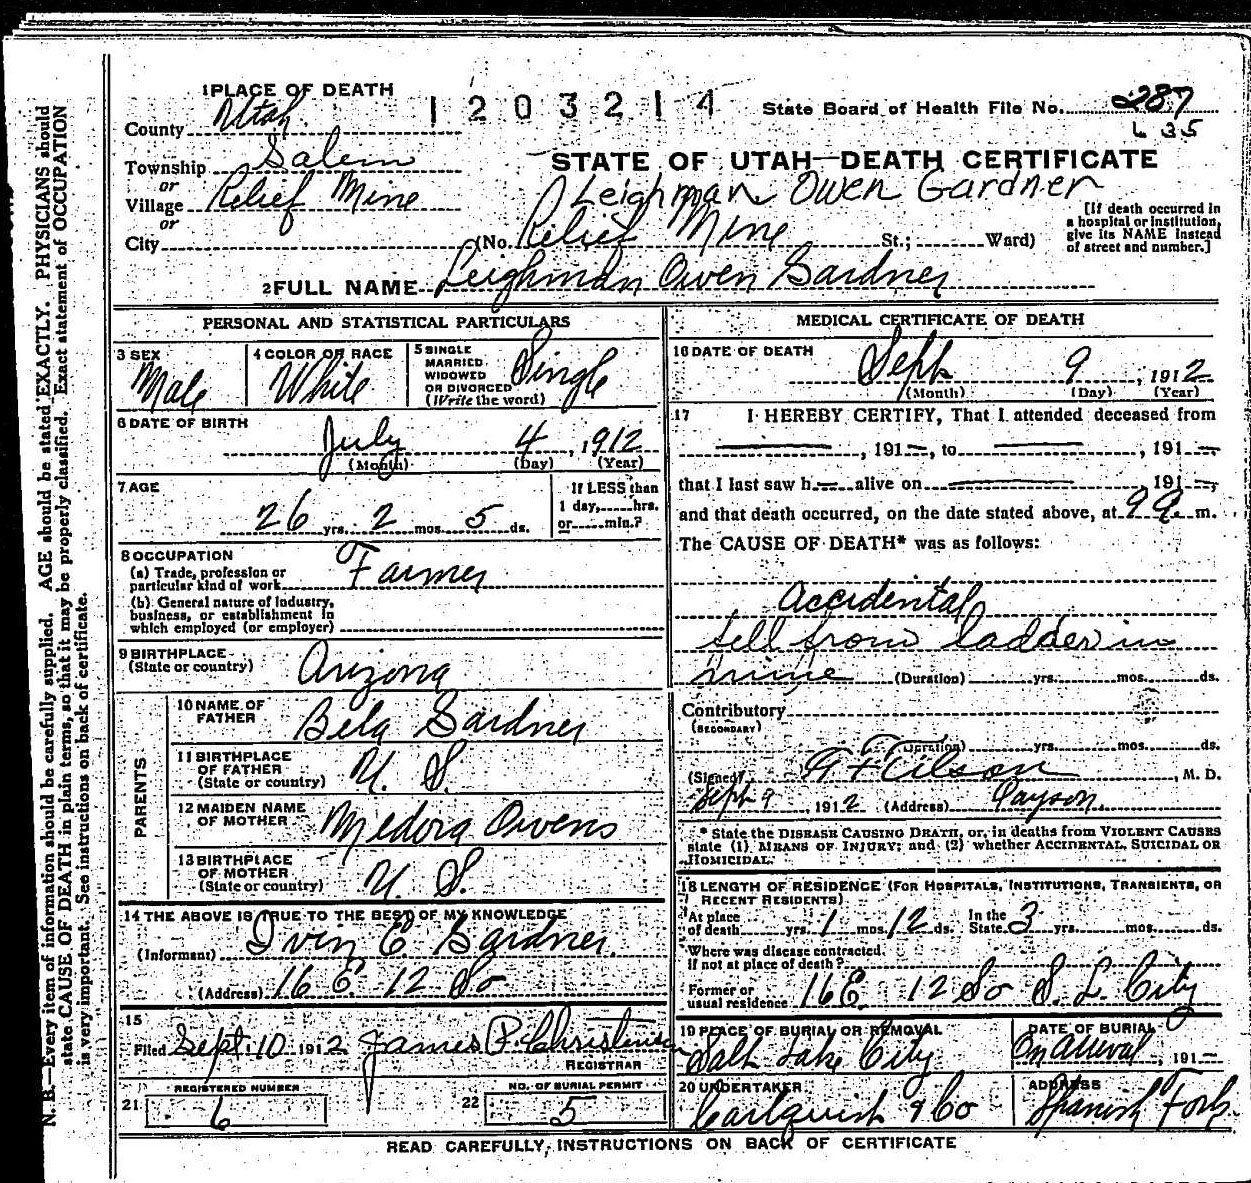 1 PLACE OF DEATH
1203214
State Board of Health File No. 287
635
County Utah.
Township Salem
or
Village Relief Mine
or
City
STATE OF UTAH—DEATH CERTIFICATE
Leighman Owen Gardner
(No. Relief Mine St.; Ward)
[If death occurred in a hospital or institution, give its NAME instead of street and number.]
2 FULL NAME Leighman Owen Gardner
PERSONAL AND STATISTICAL PARTICULARS
3 SEX
Male
4 COLOR OR RACE
White
5 SINGLE
MARRIED
WIDOWED
OR DIVORCED
(Write the word)
Single
6 DATE OF BIRTH
July 4, 1912
(Month) (Day) (Year)
7 AGE
26 yrs. 2 mos. 5 ds.
If LESS than
1 day, hrs.
or min.?
8 OCCUPATION
(a) Trade, profession or
particular kind of work Farmer
(b) General nature of industry,
business, or establishment in
which employed (or employer)
9 BIRTHPLACE
(State or country) Arizona
PARENTS
10 NAME OF
FATHER Bela Gardner
11 BIRTHPLACE
OF FATHER
(State or country) U. S.
12 MAIDEN NAME
OF MOTHER Medora Owens
13 BIRTHPLACE
OF MOTHER
(State or country) U. S.
14 THE ABOVE IS TRUE TO THE BEST OF MY KNOWLEDGE
(Informant) Ivin E. Gardner
(Address) 16 E 12 So
15
Filed Sept. 10 1912 James P. Christensen
REGISTRAR
REGISTERED NUMBER
21 6
NO. OF BURIAL PERMIT
22 5
MEDICAL CERTIFICATE OF DEATH
16 DATE OF DEATH
Sept 9, 1912
(Month) (Day) (Year)
17 I HEREBY CERTIFY, That I attended deceased from
—, 191—, to —, 191—,
that I last saw h— alive on —, 191—,
and that death occurred, on the date stated above, at 9 a. m.
The CAUSE OF DEATH* was as follows:
Accidental
fell from ladder in
mine (Duration) yrs. mos. ds.
Contributory
(SECONDARY)
(Duration) yrs. mos. ds.
(Signed) Tilson, M. D.
Sept 9, 1912 (Address) Payson.
* State the DISEASE CAUSING DEATH, or, in deaths from VIOLENT CAUSES
state (1) MEANS OF INJURY; and (2) whether ACCIDENTAL, SUICIDAL OR
HOMICIDAL.
18 LENGTH OF RESIDENCE (FOR HOSPITALS, INSTITUTIONS, TRANSIENTS, OR
RECENT RESIDENTS)
At place
of death yrs. 1 mos. 12 ds. In the
State 3 yrs. mos. ds.
Where was disease contracted,
if not at place of death?
Former or
usual residence 16 E. 12 So S. L. City
19 PLACE OF BURIAL OR REMOVAL
Salt Lake City
DATE OF BURIAL
On Arrival, 191—
20 UNDERTAKER
Carlquist & Co
ADDRESS
Spanish Fork.
READ CAREFULLY, INSTRUCTIONS ON BACK OF CERTIFICATE
N. B.—Every item of information should be carefully supplied. AGE should be stated EXACTLY. PHYSICIANS should
state CAUSE OF DEATH in plain terms, so that it may be properly classified. Exact statement of OCCUPATION
is very important. See instructions on back of certificate.